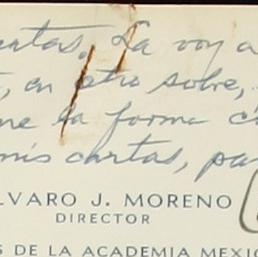 cartas. La voy a
, en otro sobre,
ne la forma c
mis cartas, pa
LVARO J. MORENO
DIRECTOR
S DE LA ACADEMIA MEXI